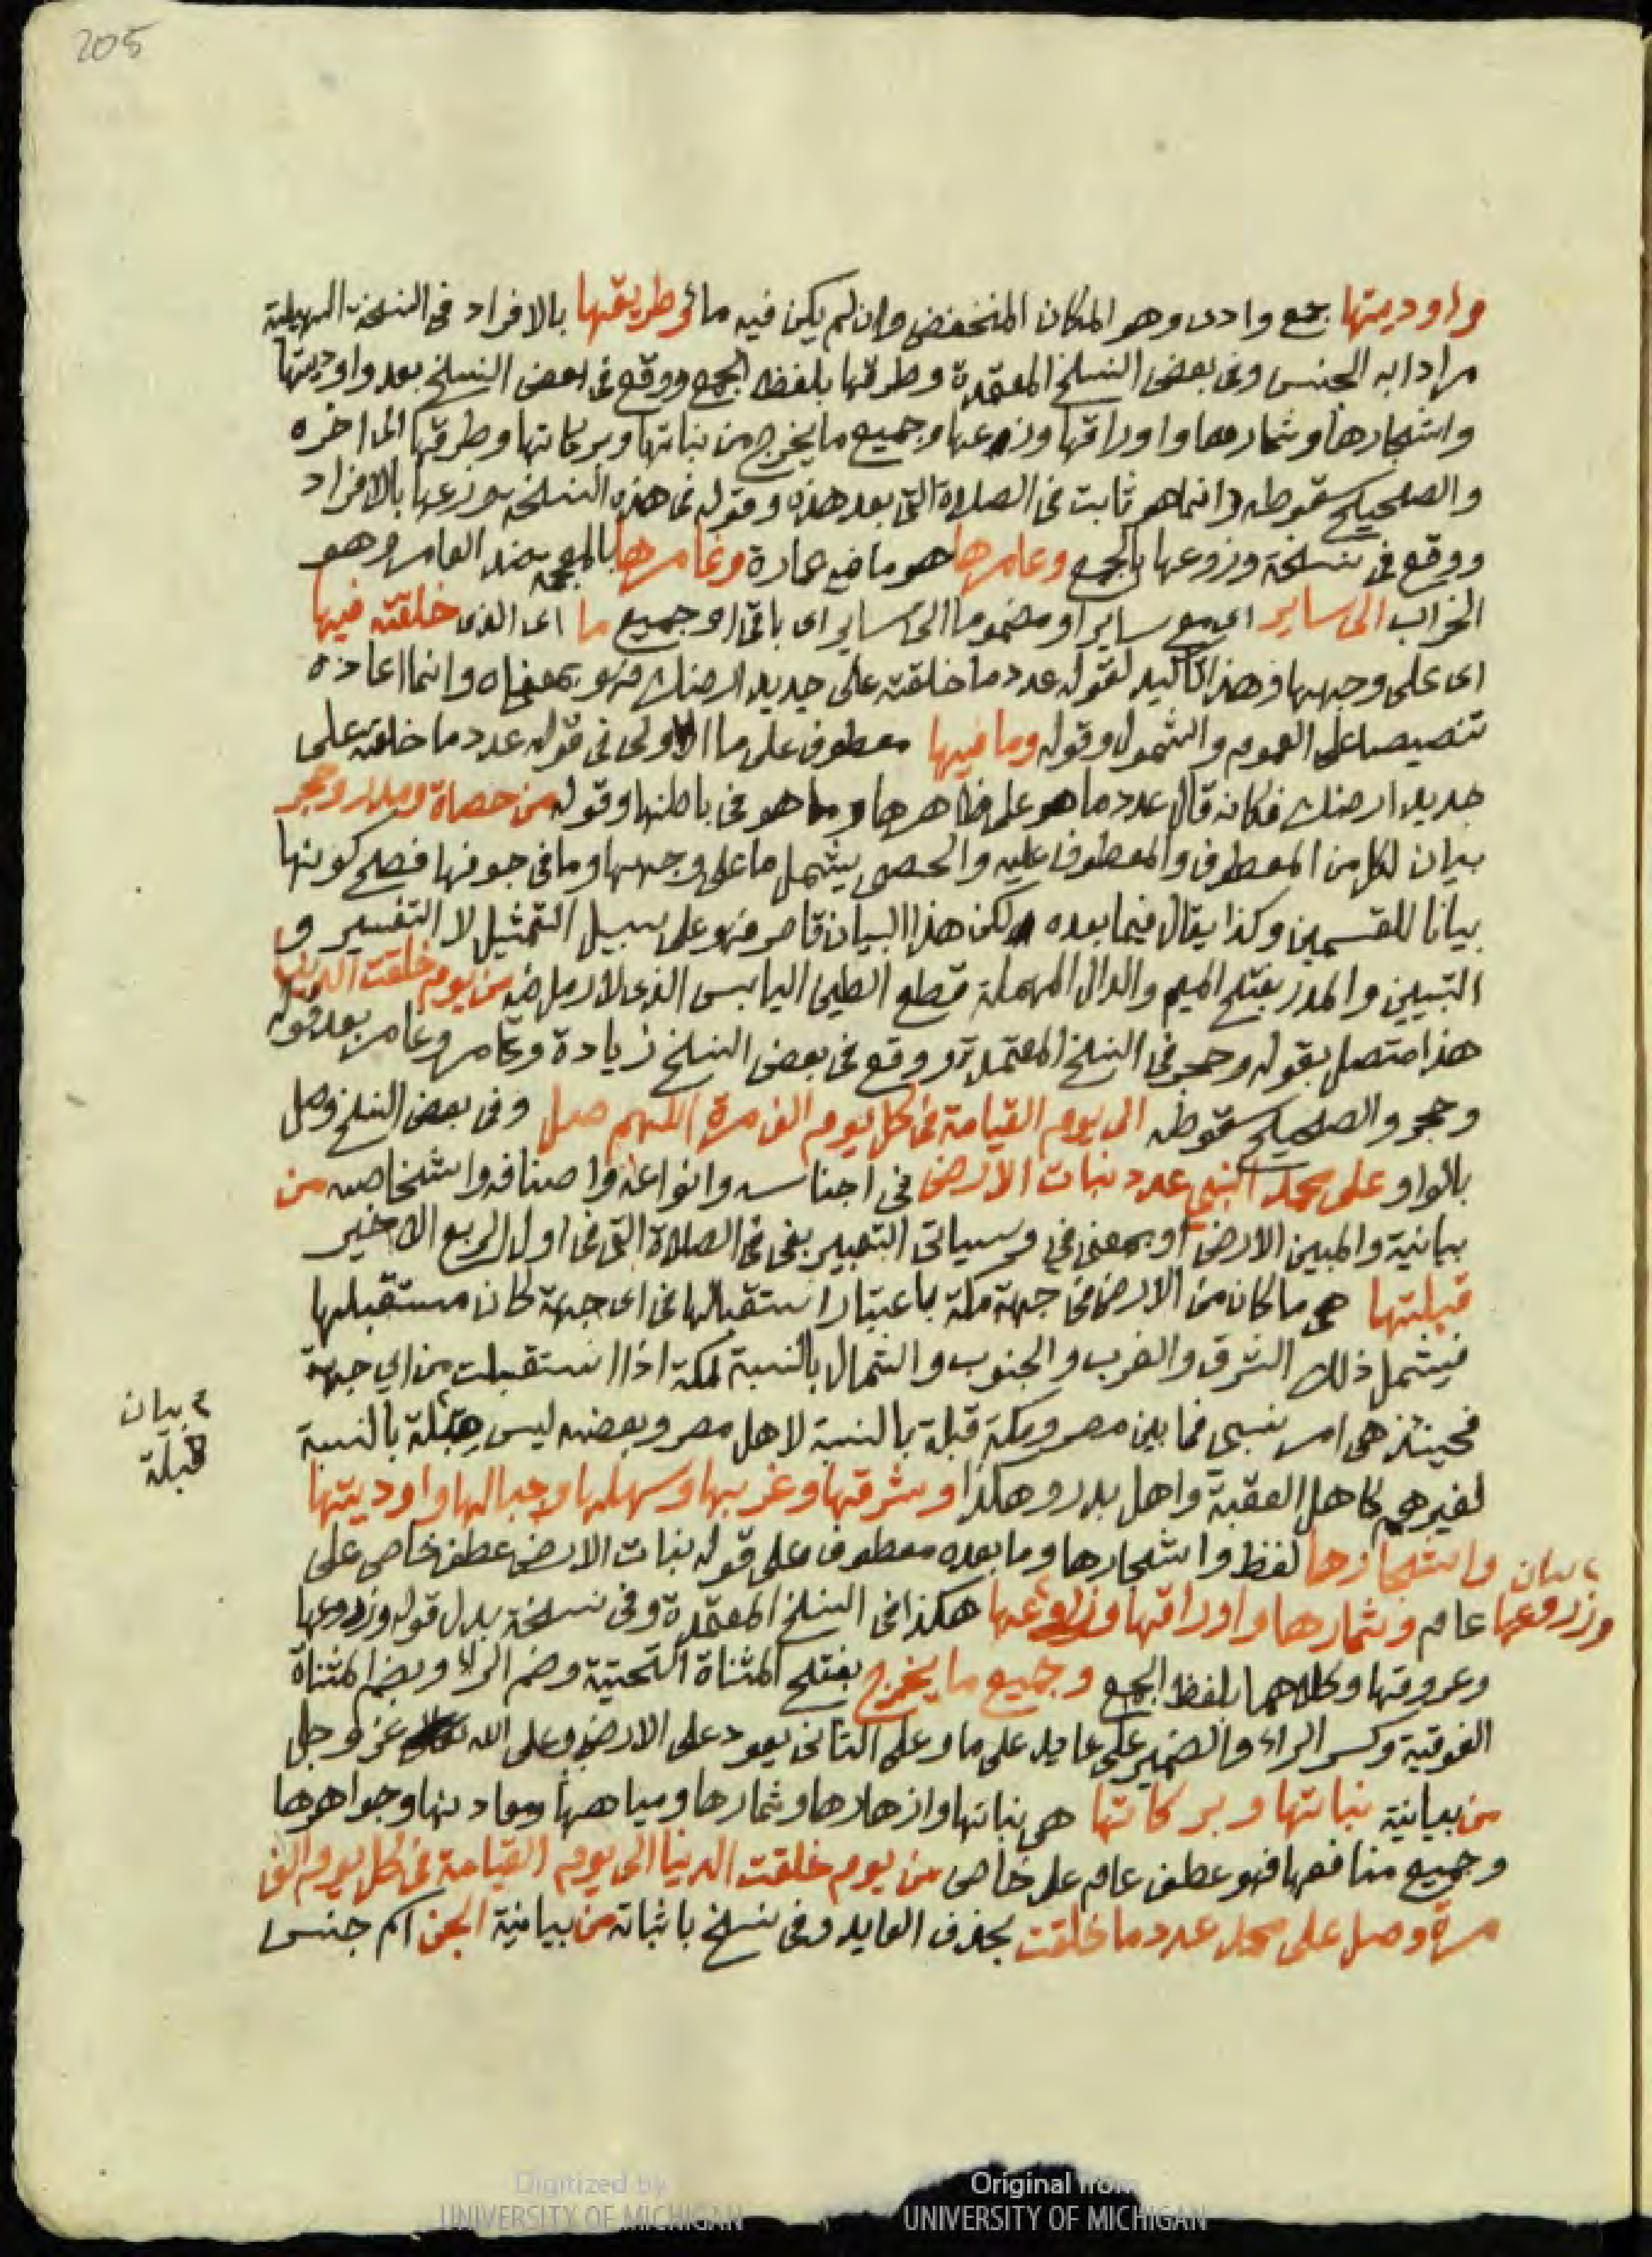 205
واوديتها جمع وادى وهو المكان المنخفض وان لم يكن فيه ماء وطريقها بالافراد فى النسخة السهيلية
مرادا به الجنس وفى بعض النسخ المعتمدة وطرقها بلفظ الجمع ووقع فى بعض النسخ بعد واوديتها
واشجارها وثمارها واوراقها وزرعها وجميع ما يخرج من نباتها وبركاتها وطرقها الى اخره
والصحيح سقوطه وانما هو ثابت فى الصلاة التى بعد هذه وقوله فى هذه النسخة وزرعها بالافراد
ووقع فى نسخة وزروعها بالجمع وعامرها هو ما فيه عمارة وغامرها بالمعجمة ضد العامر وهو
الخراب الى ساير اى مع ساير او مضموما الى ساير اى باقى او جميع ما اى الذى خلقته فيها
اى على وجهها وهذا تاكيد لقوله عدد ما خلقته على جديد ارضك فهو بمعناه وانما اعاده
تنصيصا على العموم والشمول وقوله وما فيها معطوف على ما الاولى فى قوله عدد ما خلقته على
جديد ارضك فكانه قال عدد ما هو على ظاهرها وما هو فى باطنها وقوله من حصاة ومدر وحجر
بيان لكل من المعطوف والمعطوف عليه والحصى يشمل ما على وجهها وما فى جوفها فصلح كونها
بيانا للقسمين وكذا يقال فيما بعده لكن هذا البيان قاصر فهو على سبيل التمثيل لا التفسير و
التبيين والمدر بفتح الميم والدال المهملة قطع الطين اليابس الذى لا رمل فيه من يوم خلقت الدنيا
هذا متصل بقوله وحجر فى النسخ المعتمدة ووقع فى بعض النسخ زيادة وغامر وعامر بعد قوله
وحجر والصحيح سقوطه الى يوم القيامة فى كل يوم الف مرة اللهم صل وفى بعض النسخ وصل
بالواو على محمد النبى عدد نبات الارض فى اجناسه وانواعه واصنافه واشخاصه من
بيانية والمبين الارض او بمعنى فى وسياتى التعبير بفى فى الصلاة التى فى اول الربع الاخير
قبلتها هى ما كان من الارض فى جهة مكة باعتبار استقبالها فى اى جهة كان مستقبلها
فيشمل ذلك الشرق والغرب والجنوب والشمال بالنسبة لمكة اذا استقبلت من اي جهة
فحينئذ هى امر نسبى فما بين مصر ومكة قبلة بالنسبة لاهل مصر وبعضه ليس قبلة بالنسبة
بيان
قبلة
لغيرهم كاهل العقبة واهل بدر وهكذا وشرقها وغربها وسهلها وجبالها واوديتها
واشجارها لفظ واشجارها وما بعده معطوف على قوله نبات الارض عطف خاص على
بيان
وزروعها
عام وثمارها واوراقها وزروعها هكذا فى النسخ المعتمدة وفى نسخة بدل قوله وزروعها
وعروقها وكلاهما بلفظ الجمع وجميع ما يخرج بفتح المثناة التحتية وضم الراء وبضم المثناة
الفوقية وكسر الراء والضمير على عايد على ما وعلى الثانى يعود على الارض وعلى الله عز وجل
من بيانية نباتها وبركاتها هى نباتها وازهارها وثمارها ومياهها ومعادنها وجواهرها
وجميع منافعها فهو عطف عام على خاص من يوم خلقت الدنيا الى يوم القيامة فى كل يوم الف
مرة وصل على محمد عدد ما خلقت بحذف العايد وفى نسخ باثباته من بيانية الجن اسم جنس
Digitized by
UNIVERSITY OF MICHIGAN
Original from
UNIVERSITY OF MICHIGAN